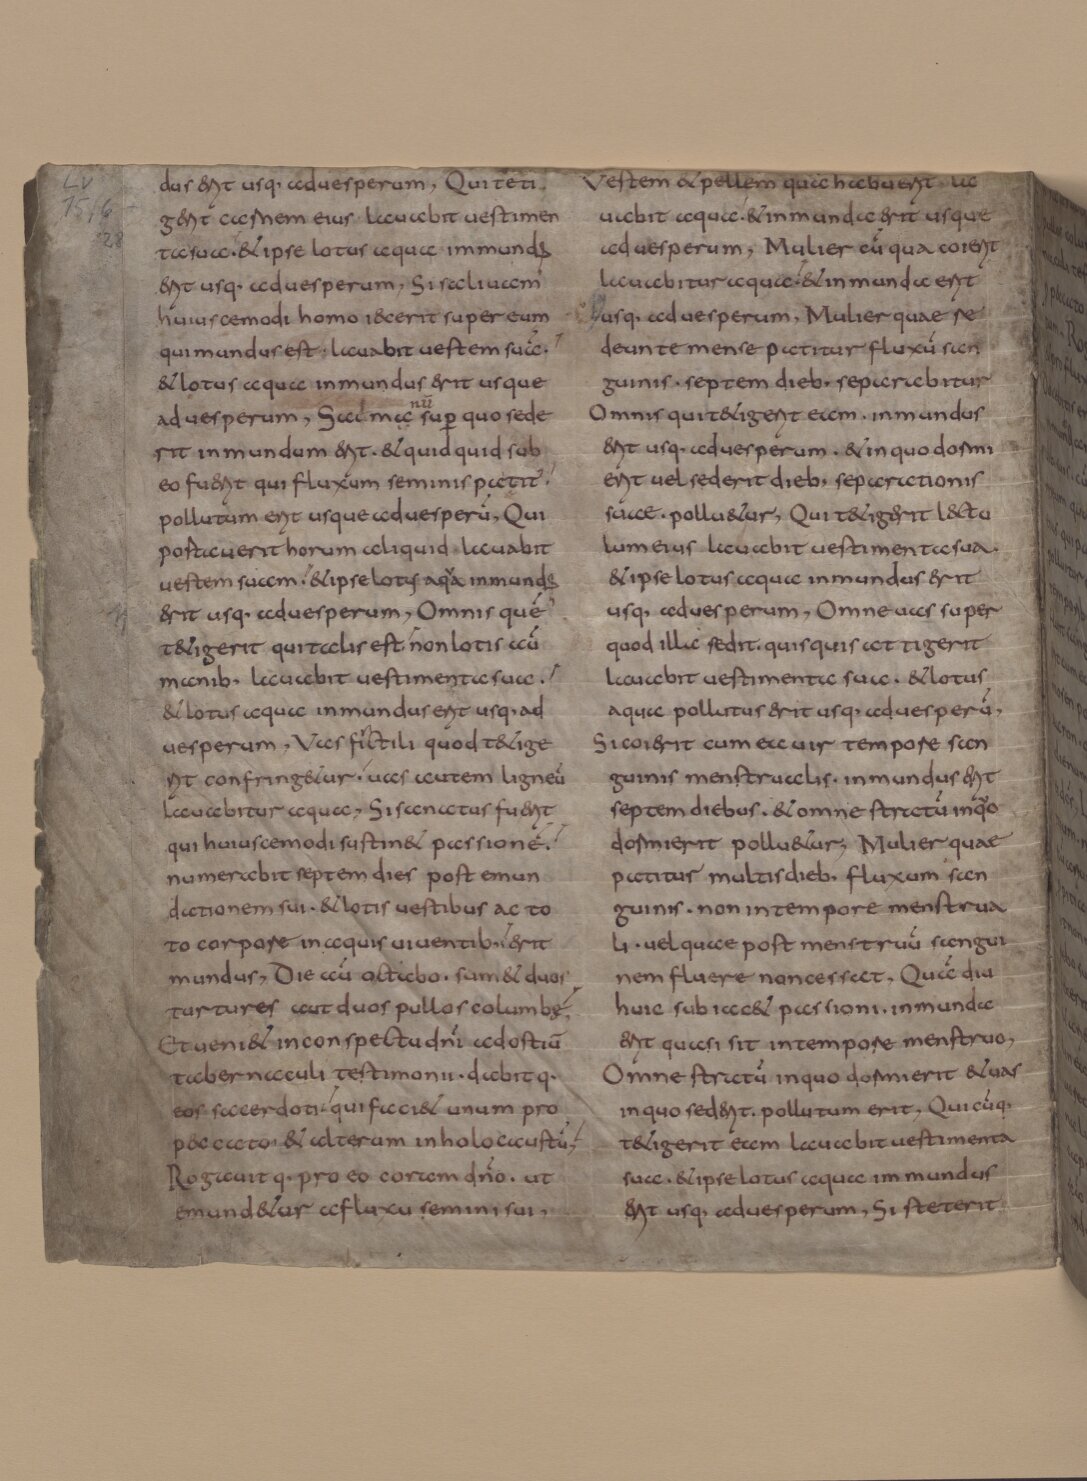 Lv
15,6
-28
dus erit usq· ad uesperum, Qui teti
gerit carnem eius lauabit uestimen
ta sua· & ipse lotus aqua immund;
erit usq· ad uesperum, Si saliuam
huiuscemodi homo iecerit super eum
qui mundus est· lauabit uestem suā·
& lotus aqua inmundus erit usque
ad uesperum, Sagma sup̄ quo sede
rit inmundum erit· & quidquid sub
eo fuerit qui fluxum seminis patit̄
pollutum erit usque ad uesperū, Qui
portauerit horum aliquid lauabit
uestem suam· & ipse lotus aqua inmund;
erit usq· ad uesperum, Omnis quē
tetigerit qui talis est non lotis aū
manib· lauabit uestimenta sua·
& lotus aqua inmundus erit usq· ad
uesperum, Vas fictili quod tetige
rit confringetur· uas autem ligneū
lauabitur aqua, Si sanatus fuerit
qui huiuscemodi sustinet passionē·
numerabit septem dies post emun
dationem sui· & lotis uestibus ac to
to corpore in aquis uiuentib· erit
mundus, Die aū octabo· sumet duos
turtures aut duos pullos columbę,
Et ueniet in conspectu dn̄i ad ostiū
tabernaculi testimonii· dabit q·
eos sacerdoti· qui faciet unum pro
peccato· & alterum in holocaustū,
Rogauit q· pro eo coram dn̄o· ut
emundetur a fluxu semini sui,
Vestem & pellem qua habuerit la
uabit aqua· & inmunda erit usque
ad uesperum, Mulier cū qua coierit
lauabitur aqua· & inmunda erit
usq· ad uesperum, Mulier quae re
deunte mense patitur fluxū san
guinis· septem dieb· separabitur
Omnis qui tetigerit eam· inmundus
erit usq· ad uesperum· & in quo dormi
erit uel sederit dieb· separationis
suae· polluetur, Qui tetigerit lectu
lum eius lauabit uestimenta sua·
& ipse lotus aqua inmundus erit
usq· ad uesperum, Omne uas super
quod illa sedit· quisquis attigerit
lauabit uestimenta sua· & lotus
aqua pollutus erit usq· ad uesperū,
Si coierit cum ea uir tempore san
guinis menstrualis· inmundus erit
septem diebus· & omne stratū in quo
dormierit polluetur, Mulier quae
patitur multis dieb· fluxum san
guinis· non in tempore menstrua
li· uel quae post menstruū sangui
nem fluere non cessat, Quā diu
huic subiacet passioni· inmunda
erit quasi sit in tempore menstruo,
Omne stratū in quo dormierit & uas
in quo sederit· pollutum erit, Quicūq·
tetigerit eam lauabit uestimenta
sua· & ipse lotus aqua immundus
erit usq· ad uesperum, Si steterit